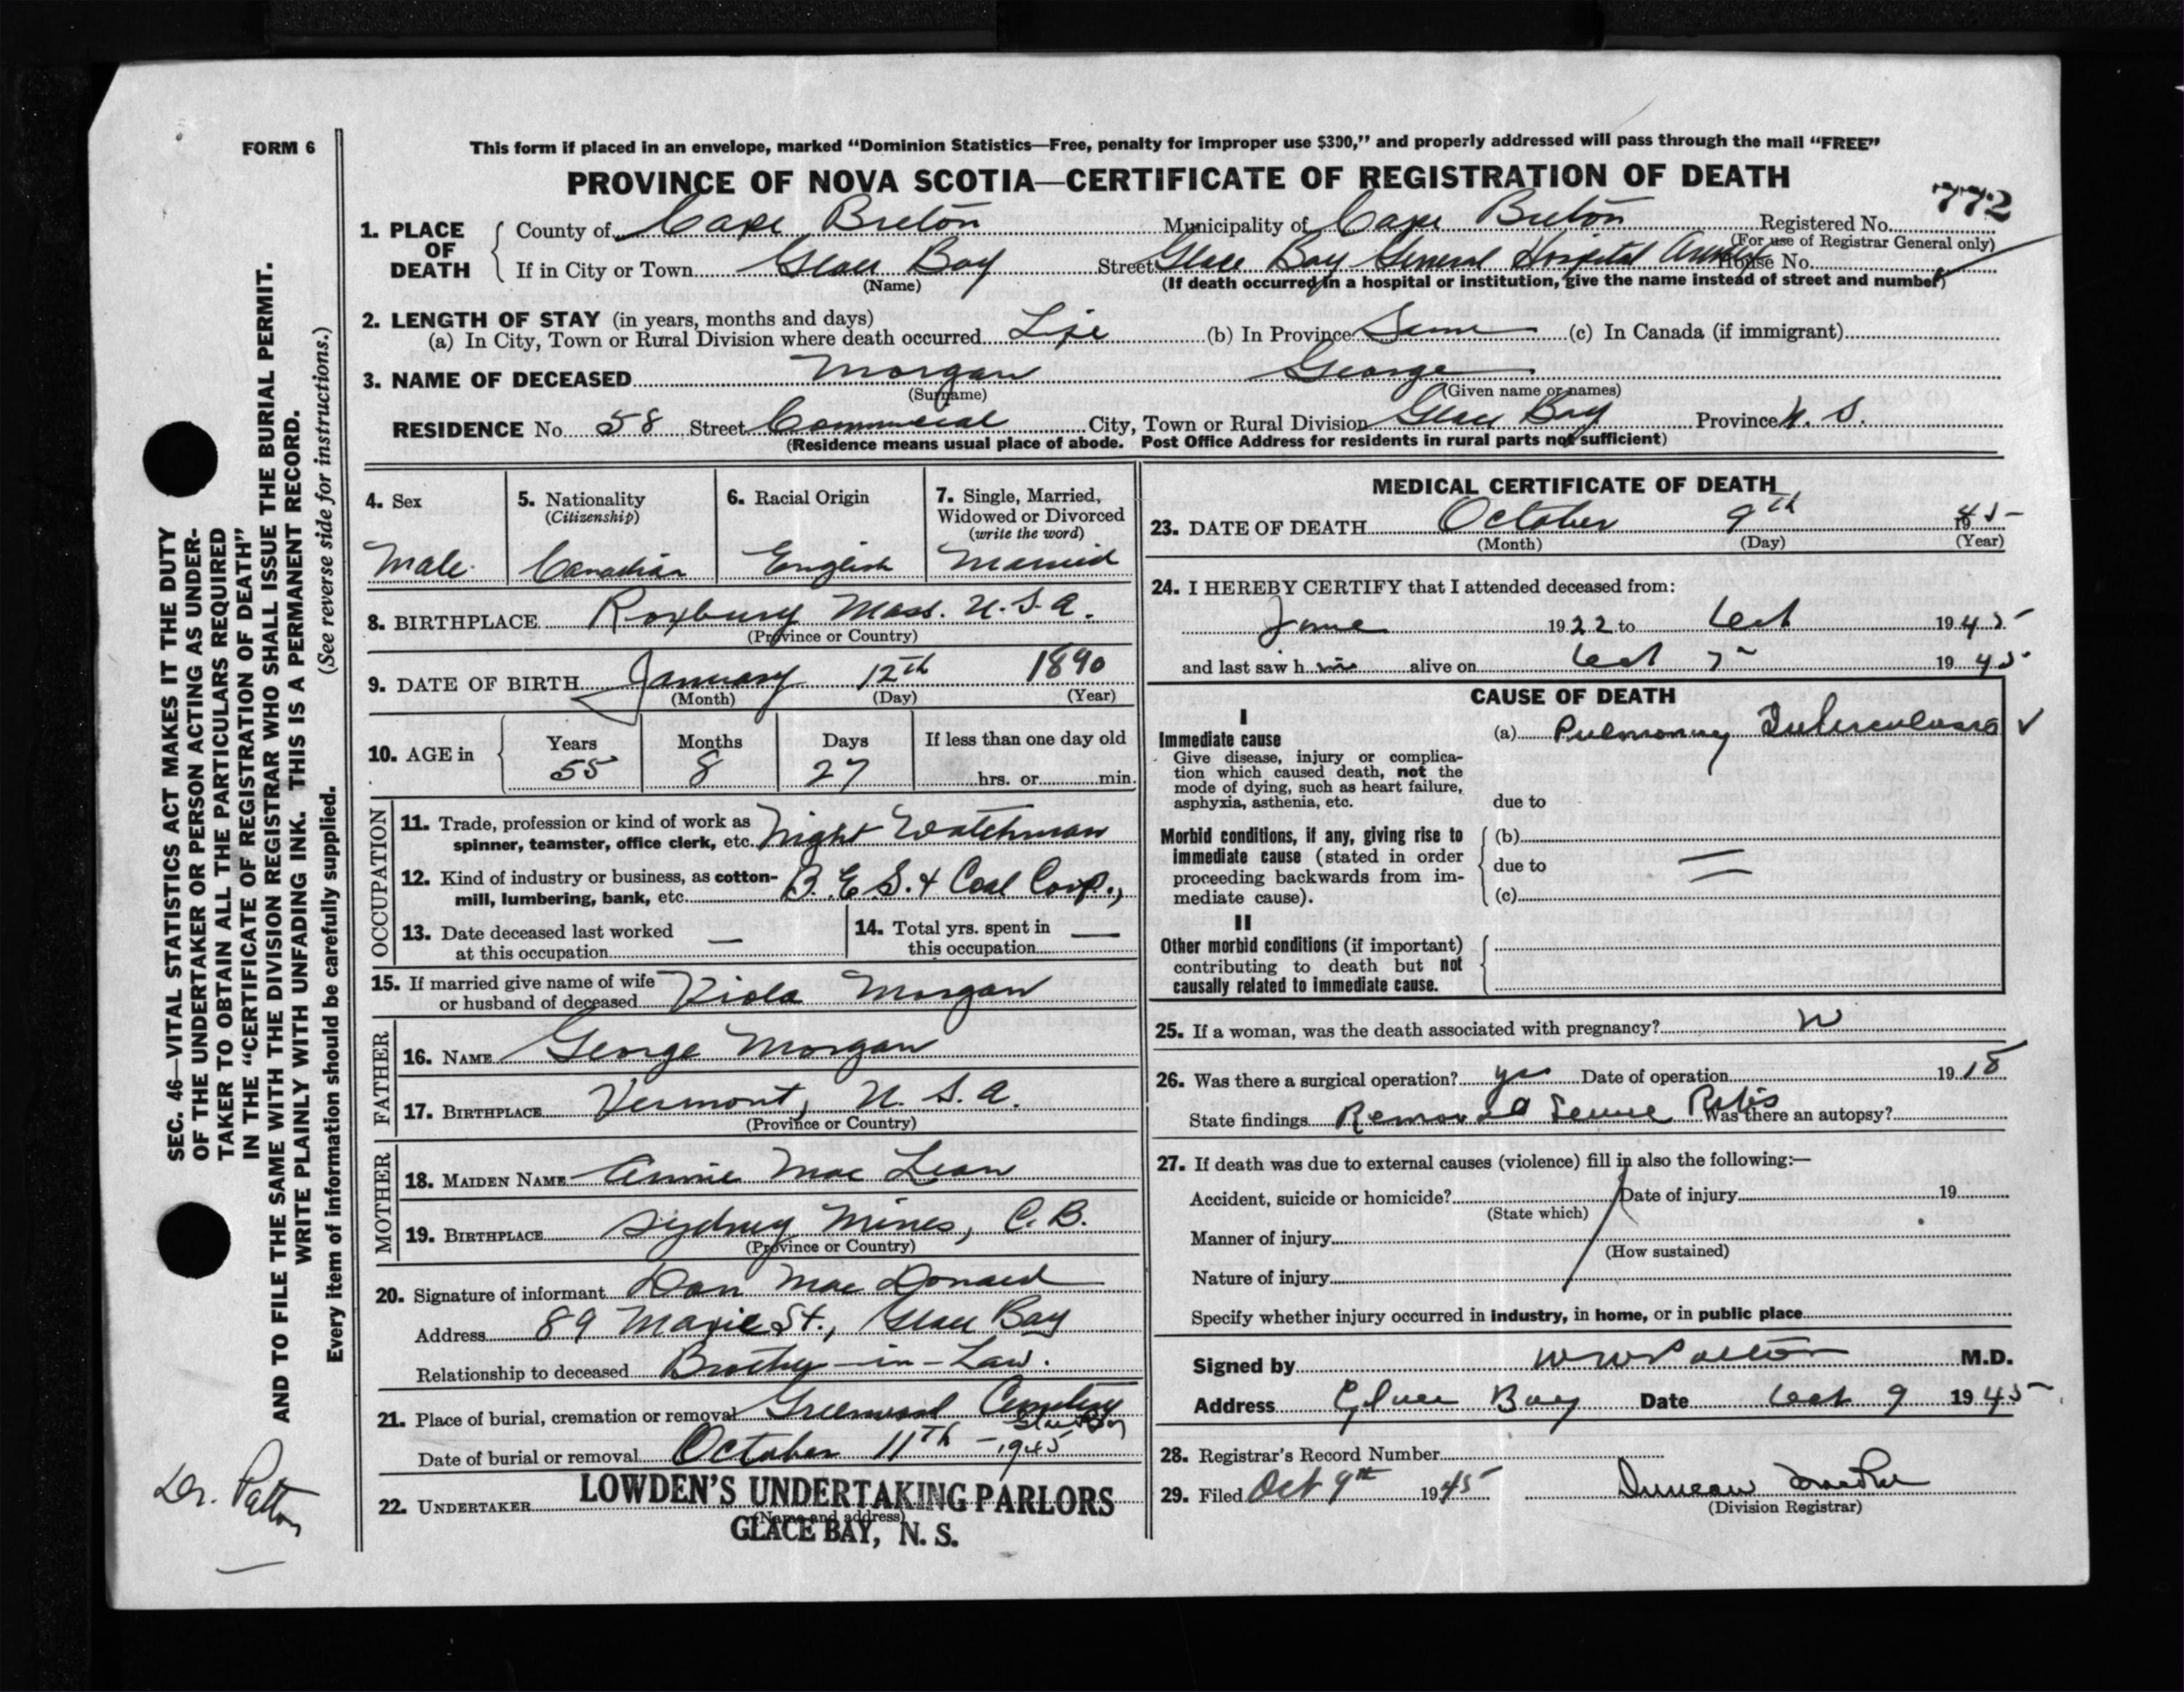 FORM 6
This form if placed in an envelope, marked “Dominion Statistics—Free, penalty for improper use $300,” and properly addressed will pass through the mail “FREE”
PROVINCE OF NOVA SCOTIA—CERTIFICATE OF REGISTRATION OF DEATH
772
1. PLACE OF DEATH
County of Cape Breton Municipality of Cape Breton Registered No.
(For use of Registrar General only)
If in City or Town Glace Bay Street Glace Bay General Hospital Annex House No.
(Name) (If death occurred in a hospital or institution, give the name instead of street and number)
2. LENGTH OF STAY (in years, months and days)
(a) In City, Town or Rural Division where death occurred Life (b) In Province Same (c) In Canada (if immigrant)
3. NAME OF DECEASED Morgan George
(Surname) (Given name or names)
RESIDENCE No. 58 Street Commercial City, Town or Rural Division Glace Bay Province N. S.
(Residence means usual place of abode. Post Office Address for residents in rural parts not sufficient)
4. Sex
Male
5. Nationality
(Citizenship)
Canadian
6. Racial Origin
English
7. Single, Married,
Widowed or Divorced
(write the word)
Married
8. BIRTHPLACE Roxbury Mass. U.S.A.
(Province or Country)
9. DATE OF BIRTH January 12th 1890
(Month) (Day) (Year)
10. AGE in
Years Months Days If less than one day old
55 8 27 hrs. or min.
OCCUPATION
11. Trade, profession or kind of work as
spinner, teamster, office clerk, etc. Night Watchman
12. Kind of industry or business, as cotton-
mill, lumbering, bank, etc. B.E.S. & Coal Corp.,
13. Date deceased last worked
at this occupation —
14. Total yrs. spent in
this occupation —
15. If married give name of wife
or husband of deceased Viola Morgan
FATHER
16. NAME George Morgan
17. BIRTHPLACE Vermont, U. S. A.
(Province or Country)
MOTHER
18. MAIDEN NAME Annie Mac Lean
19. BIRTHPLACE Sydney Mines, C. B.
(Province or Country)
20. Signature of informant Dan Mac Donald
Address 89 Marie St., Glace Bay
Relationship to deceased Brother-in-Law.
21. Place of burial, cremation or removal Greenwood Cemetery
Glace Bay
Date of burial or removal October 11th -1945
22. UNDERTAKER LOWDEN'S UNDERTAKING PARLORS
(Name and address)
GLACE BAY, N. S.
MEDICAL CERTIFICATE OF DEATH
23. DATE OF DEATH October 9th 1945
(Month) (Day) (Year)
24. I HEREBY CERTIFY that I attended deceased from:
June 1922 to Oct 1945
and last saw him alive on Oct 7 1945
CAUSE OF DEATH
I
Immediate cause
Give disease, injury or complica-
tion which caused death, not the
mode of dying, such as heart failure,
asphyxia, asthenia, etc.
(a) Pulmonary Tuberculosis ✓
due to
Morbid conditions, if any, giving rise to
immediate cause (stated in order
proceeding backwards from im-
mediate cause).
(b)
due to
(c)
II
Other morbid conditions (if important)
contributing to death but not
causally related to immediate cause.
25. If a woman, was the death associated with pregnancy?
26. Was there a surgical operation? yes Date of operation 1918
State findings Removal Ribs Was there an autopsy?
27. If death was due to external causes (violence) fill in also the following:—
Accident, suicide or homicide? Date of injury 19
(State which)
Manner of injury
(How sustained)
Nature of injury
Specify whether injury occurred in industry, in home, or in public place
Signed by W W Patton M.D.
Address Glace Bay Date Oct 9 1945
28. Registrar's Record Number
29. Filed Oct 9th 1945 Duncan
(Division Registrar)
SEC. 46—VITAL STATISTICS ACT MAKES IT THE DUTY
OF THE UNDERTAKER OR PERSON ACTING AS UNDER-
TAKER TO OBTAIN ALL THE PARTICULARS REQUIRED
IN THE “CERTIFICATE OF REGISTRATION OF DEATH”
AND TO FILE THE SAME WITH THE DIVISION REGISTRAR WHO SHALL ISSUE THE BURIAL PERMIT.
WRITE PLAINLY WITH UNFADING INK. THIS IS A PERMANENT RECORD.
Every item of information should be carefully supplied. (See reverse side for instructions.)
Dr. Patton